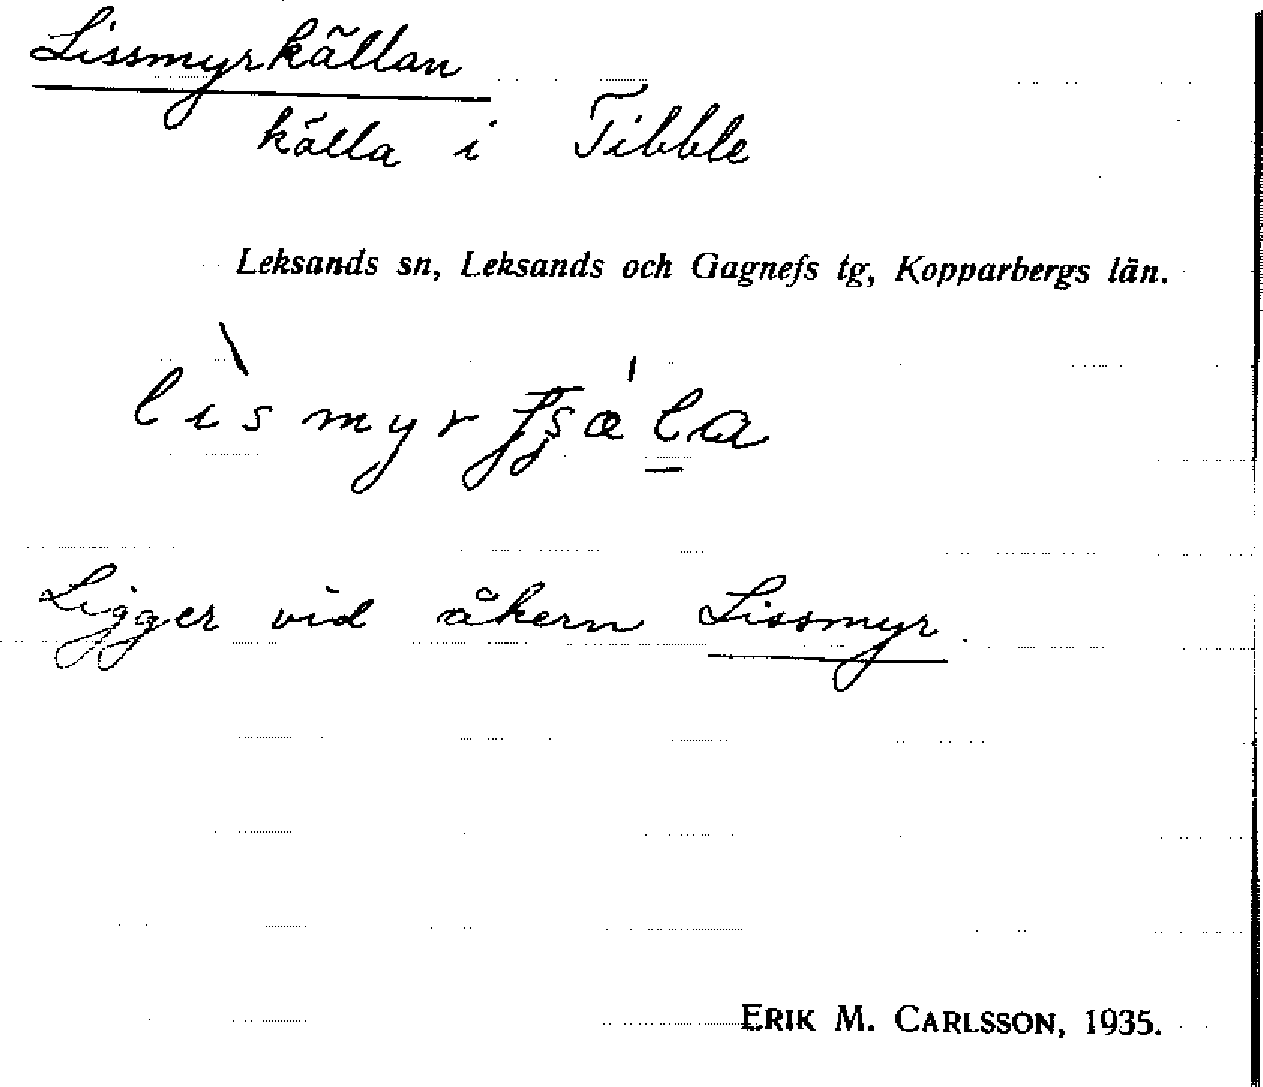 Lissmyrkällan
källa i Tibble
Leksands sn, Leksands och Gagnefs tg, Kopparbergs län.
Ligger vid åkern Lissmyr.
ERIK M. CARLSSON, 1935.